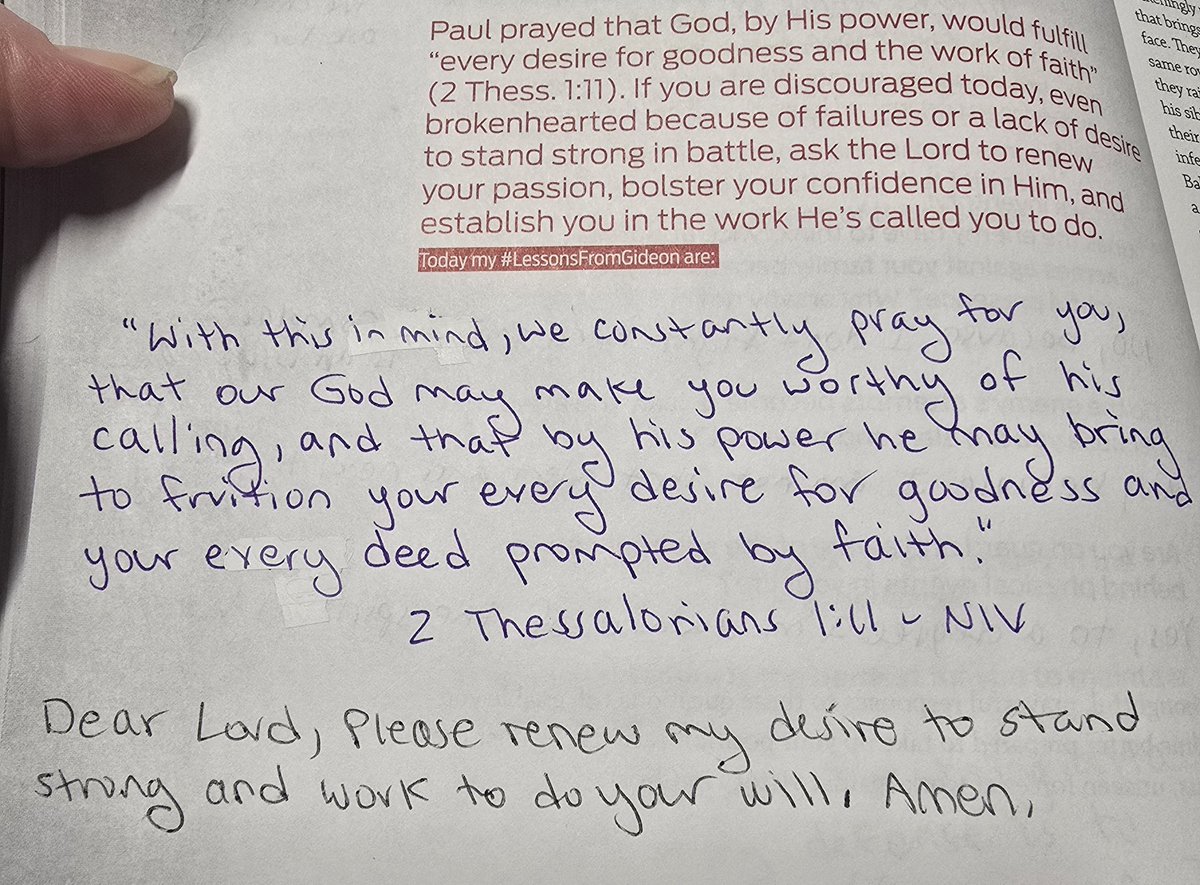 Paul prayed that God, by His power, would fulfill
"every desire for goodness and the work of faith"
(2 Thess. 1:11). If you are discouraged today, even
brokenhearted because of failures or a lack of desire
to stand strong in battle, ask the Lord to renew
your passion, bolster your confidence in Him, and
establish you in the work He's called you to do.
Today my #LessonsFromGideon are:
"With this in mind, we constantly pray for you,
that our God may make you worthy of his
calling, and that by his power he may bring
to fruition your every desire for goodness and
your every deed prompted by faith."
2 Thessalonians 1:11 - NIV
Dear Lord, Please renew my desire to stand
strong and work to do your will. Amen.
that brings
face. They
same
they
his
their